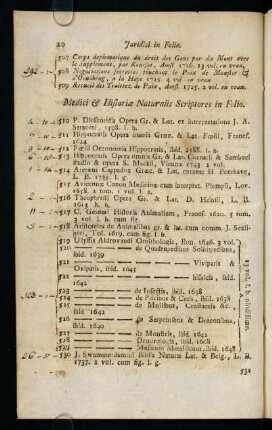 20 Juridici in Folio.
507 Corps deplomatique du droit des Gens par du Mont avec
le Supplement, par Rousset, Amst. 1726. 13 vol. en veau.
508 Negociations secretes touchant la Paix de Munster &
d'Osnabrug, a la Haye 1725. 4 vol en veau
509 Recueil des Traittez de Paix, Amst. 1725. 2 vol. en veau.
Medici & Historiæ Naturalis Scriptores in Folio.
510 P. Dioscoridis Opera Gr. & Lat. ex interpretatione J. A.
Saraceni, 1598. l. b.
511 Hippocratis Opera omnia Græc. & Lat. Foesii, Francf.
1624
512 Foesii Oeconomia Hippocratis, ibid. 1588.
513 Hippocratis Opera omnia Gr. & Lat. Cornarii & Sambuci
studio & opera St. Mackii, Viennæ 1743. 2 vol.
514 Aretæus Cappadox Græc. & Lat. curante H. Boerhave,
L. B. 1731. l. g.
515 Avicennæ Canon Medicinæ cum interpret. Plempii, Lov.
1658. 2 tom. 1 vol. f. a.
516 Theophrasti Opera Gr. & Lat. D. Heinsii, L. B.
1613
517 C. Gesneri Historia Animalium, Francf. 1620. 5 tom.
3 vol. l. h. cum fig.
518 Aristoteles de Animalibus gr. & lat. cum comm. J. Scaligeri,
Tol. 1619. cum fig. l. h.
519 Ulyssis Aldrovandi Ornithologia, Bon. 1646. 3 vol.
520 — — — de Quadrupedibus Solidipedibus
ibid. 1639
521 — — — — — Viviparis &
Oviparis, ibid. 1645
522 — — — — — bisulcis, ibid.
1642
523 — — — de Insectis, ibid. 1638
524 — — — de Piscibus & Cetis, ibid. 1638
525 — — — de Mollibus, Crustaceis &c.
ibid. 1642
526 — — — de Serpentibus & Draconibus,
ibid. 1640
527 — — — de Monstris, ibid. 1642
528 — — — Dendrologia, ibid. 1668
529 — — — Musæum Metallicum, ibid. 1648
13 vol. l. h. nitidissim.
530 J. Swammerdammii Biblia Naturæ Lat. & Belg., L. B.
1737. 2 vol. cum fig. l. g.
531